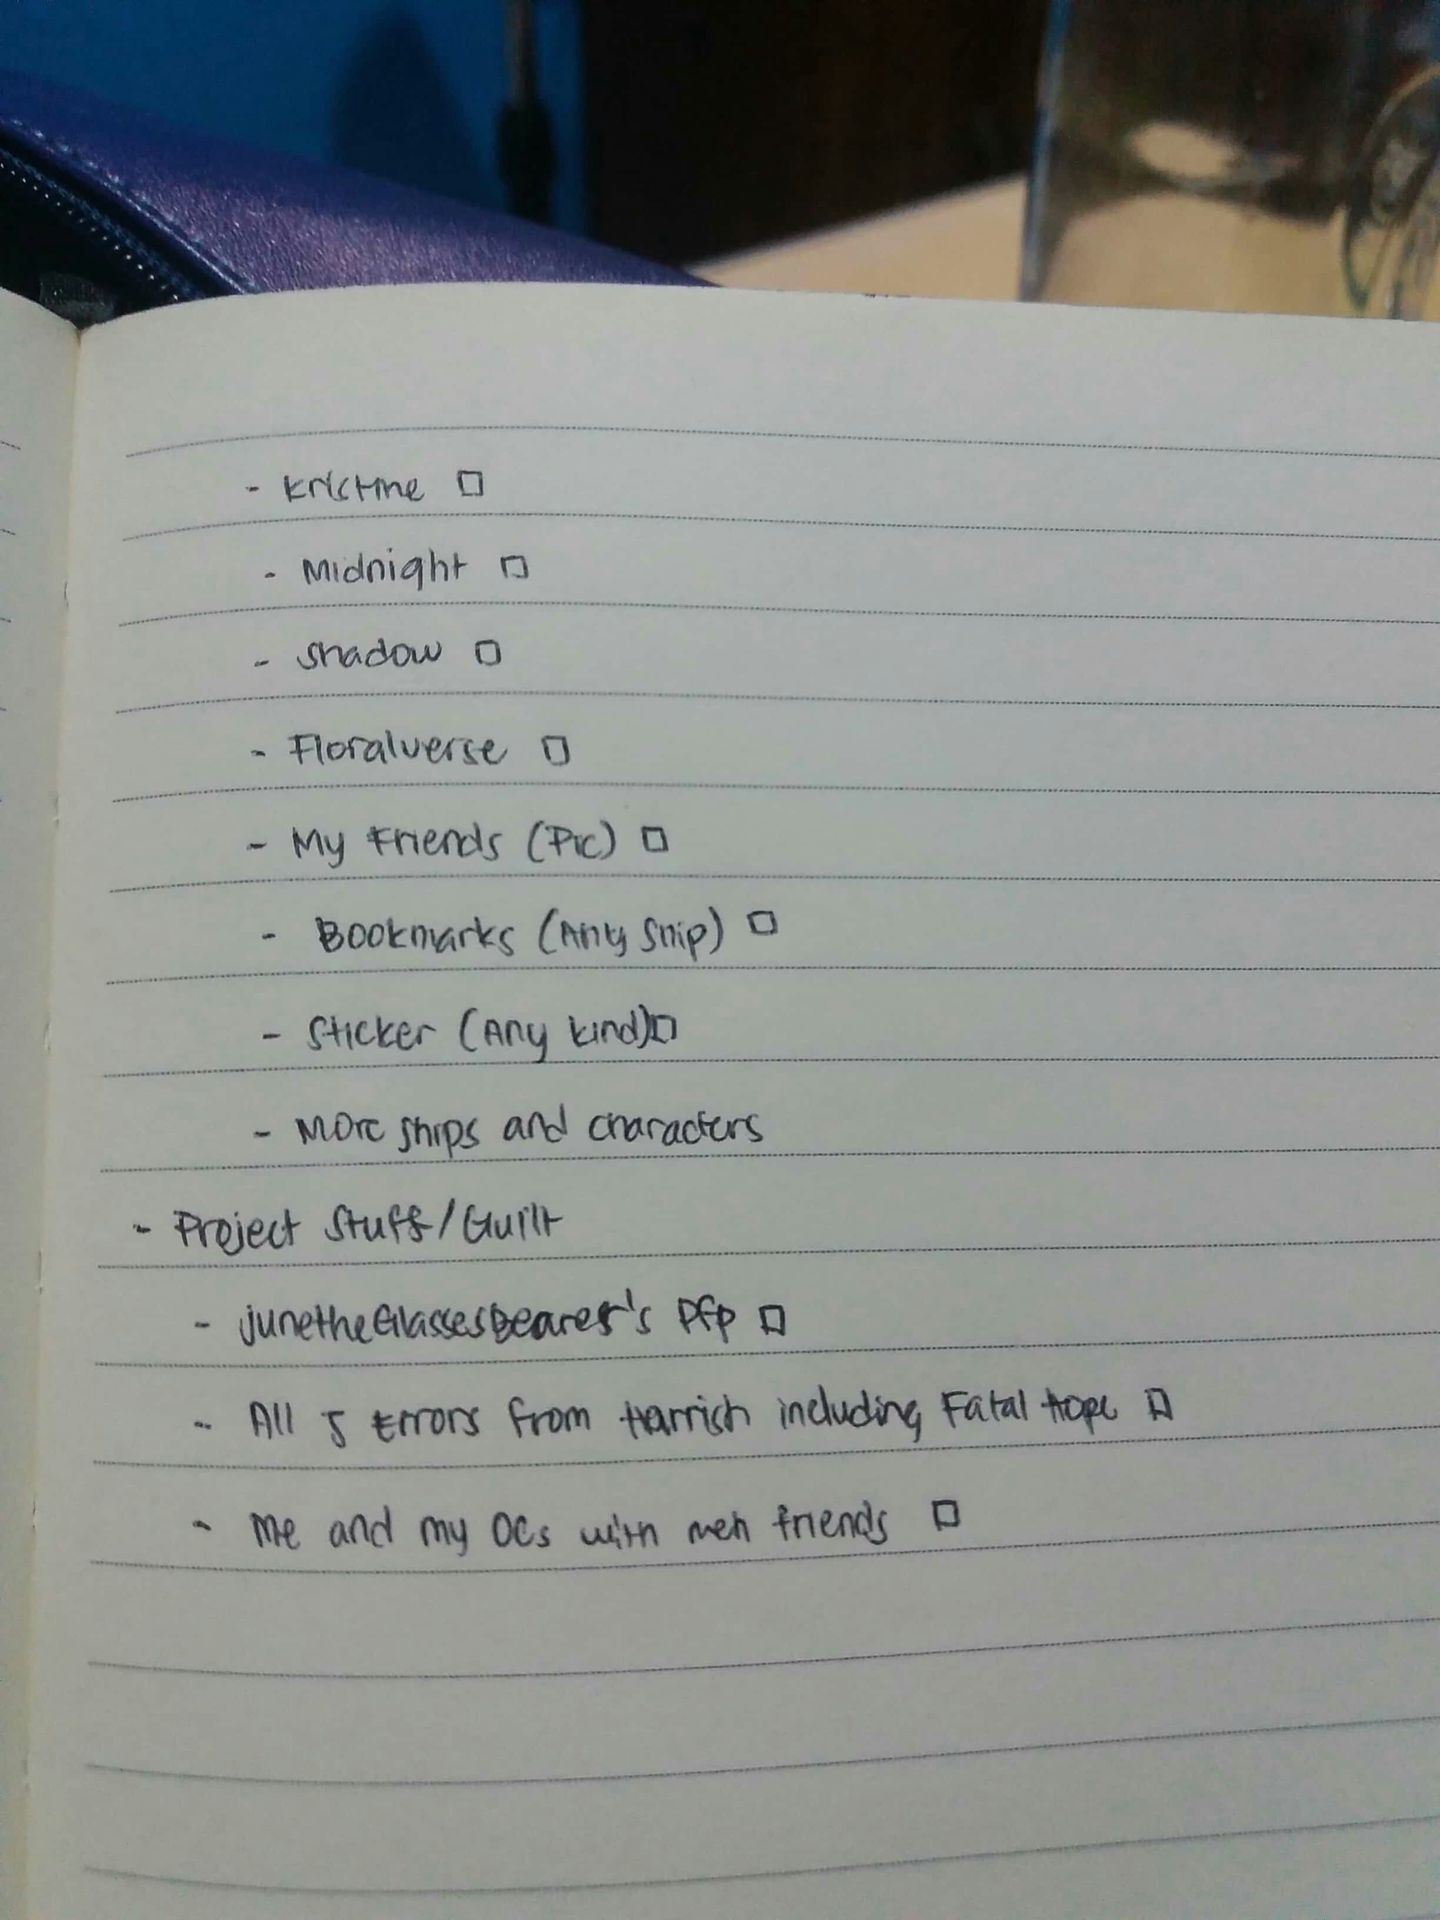 - Kristine □
- Midnight □
- Shadow □
- Floralverse □
- My Friends (Pic) □
- Bookmarks (Any Ship) □
- Sticker (Any kind) □
- More ships and characters
- Project Stuff/Guilt
- junetheGlassesBearer's Pfp □
- All 5 Errors from Harrish including Fatal Hope □
- Me and my OCs with meh friends □